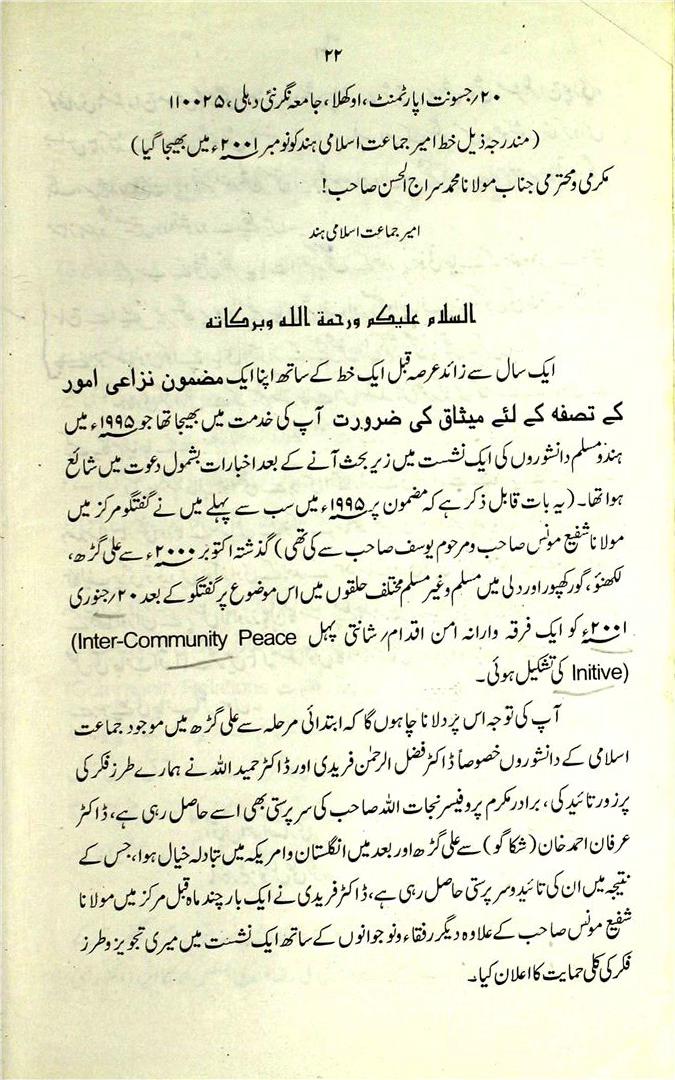 ۲۲
۲۰؍جسونت اپارٹمنٹ، اوکھلا، جامعہ نگر نئی دہلی، ۱۱۰۰۲۵
(مندرجہ ذیل خط امیر جماعت اسلامی ہند کو نومبر ۲۰۰۱ء میں بھیجا گیا)
مکرمی ومحترمی جناب مولانا محمد سراج الحسن صاحب!
امیر جماعت اسلامی ہند
السلام علیکم ورحمة الله وبرکاته
ایک سال سے زائد عرصہ قبل ایک خط کے ساتھ اپنا ایک مضمون نزاعی امور
کے تصفہ کے لئے میثاق کی ضرورت آپ کی خدمت میں بھیجا تھا جو ۱۹۹۵ء میں
ہندو مسلم دانشوروں کی ایک نشست میں زیر بحث آنے کے بعد اخبارات بشمول دعوت میں شائع
ہوا تھا۔ (یہ بات قابل ذکر ہے کہ مضمون پر ۱۹۹۵ء میں سب سے پہلے میں نے گفتگو مرکز میں
مولانا شفیع مونس صاحب ومرحوم یوسف صاحب سے کی تھی) گذشتہ اکتوبر ۲۰۰۰ء سے علی گڑھ،
لکھنؤ، گورکھپور اور دلی میں مسلم وغیر مسلم مختلف حلقوں میں اس موضوع پر گفتگو کے بعد ۲۰؍جنوری
۲۰۰۱ء کو ایک فرقہ وارانہ امن اقدام؍شانتی پہل (Inter-Community Peace
Initive) کی تشکیل ہوئی۔
آپ کی توجہ اس پر دلانا چاہوں گا کہ ابتدائی مرحلہ سے علی گڑھ میں موجود جماعت
اسلامی کے دانشوروں خصوصاً ڈاکٹر فضل الرحمٰن فریدی اور ڈاکٹر حمید اللہ نے ہمارے طرز فکر کی
پرزور تائید کی، برادر مکرم پروفیسر نجات اللہ صاحب کی سرپرستی بھی اسے حاصل رہی ہے، ڈاکٹر
عرفان احمد خان (شکاگو) سے علی گڑھ اور بعد میں انگلستان وامریکہ میں تبادلہ خیال ہوا، جس کے
نتیجہ میں ان کی تائید وسرپرستی حاصل رہی ہے، ڈاکٹر فریدی نے ایک بار چند ماہ قبل مرکز میں مولانا
شفیع مونس صاحب کے علاوہ دیگر رفقاء ونوجوانوں کے ساتھ ایک نشست میں میری تجویز وطرز
فکر کی کلی حمایت کا اعلان کیا۔